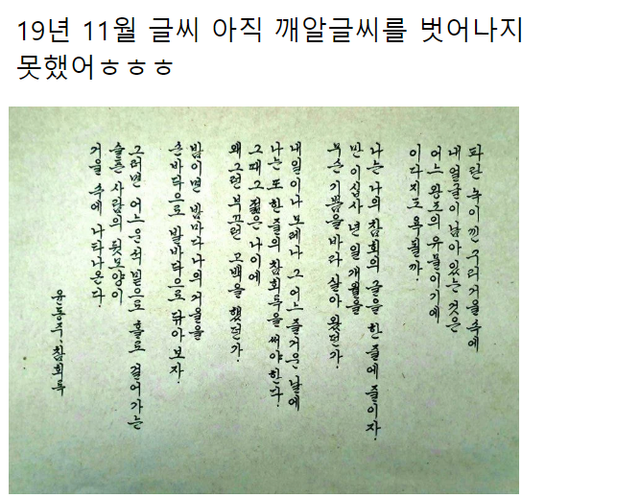 19년 11월 글씨 아직 깨알글씨를 벗어나지
못했어ㅎㅎㅎ
파란 녹이 낀 구리거울 속에
내 얼굴이 남아 있는 것은
어느 왕조의 유물이기에
이다지도 욕될까.
나는 나의 참회의 글을 한 줄에 줄이자.
만 이십사 년 일 개월을
무슨 기쁨을 바라 살아 왔던가.
내일이나 모레나 그 어느 즐거운 날에
나는 또 한 줄의 참회록을 써야 한다.
그때 그 젊은 나이에
왜 그런 부끄런 고백을 했던가.
밤이면 밤마다 나의 거울을
손바닥으로 발바닥으로 닦아보자.
그러면 어느 운석 밑으로 홀로 걸어가는
슬픈 사람의 뒷모양이
거울 속에 나타나온다.
윤동주. 참회록